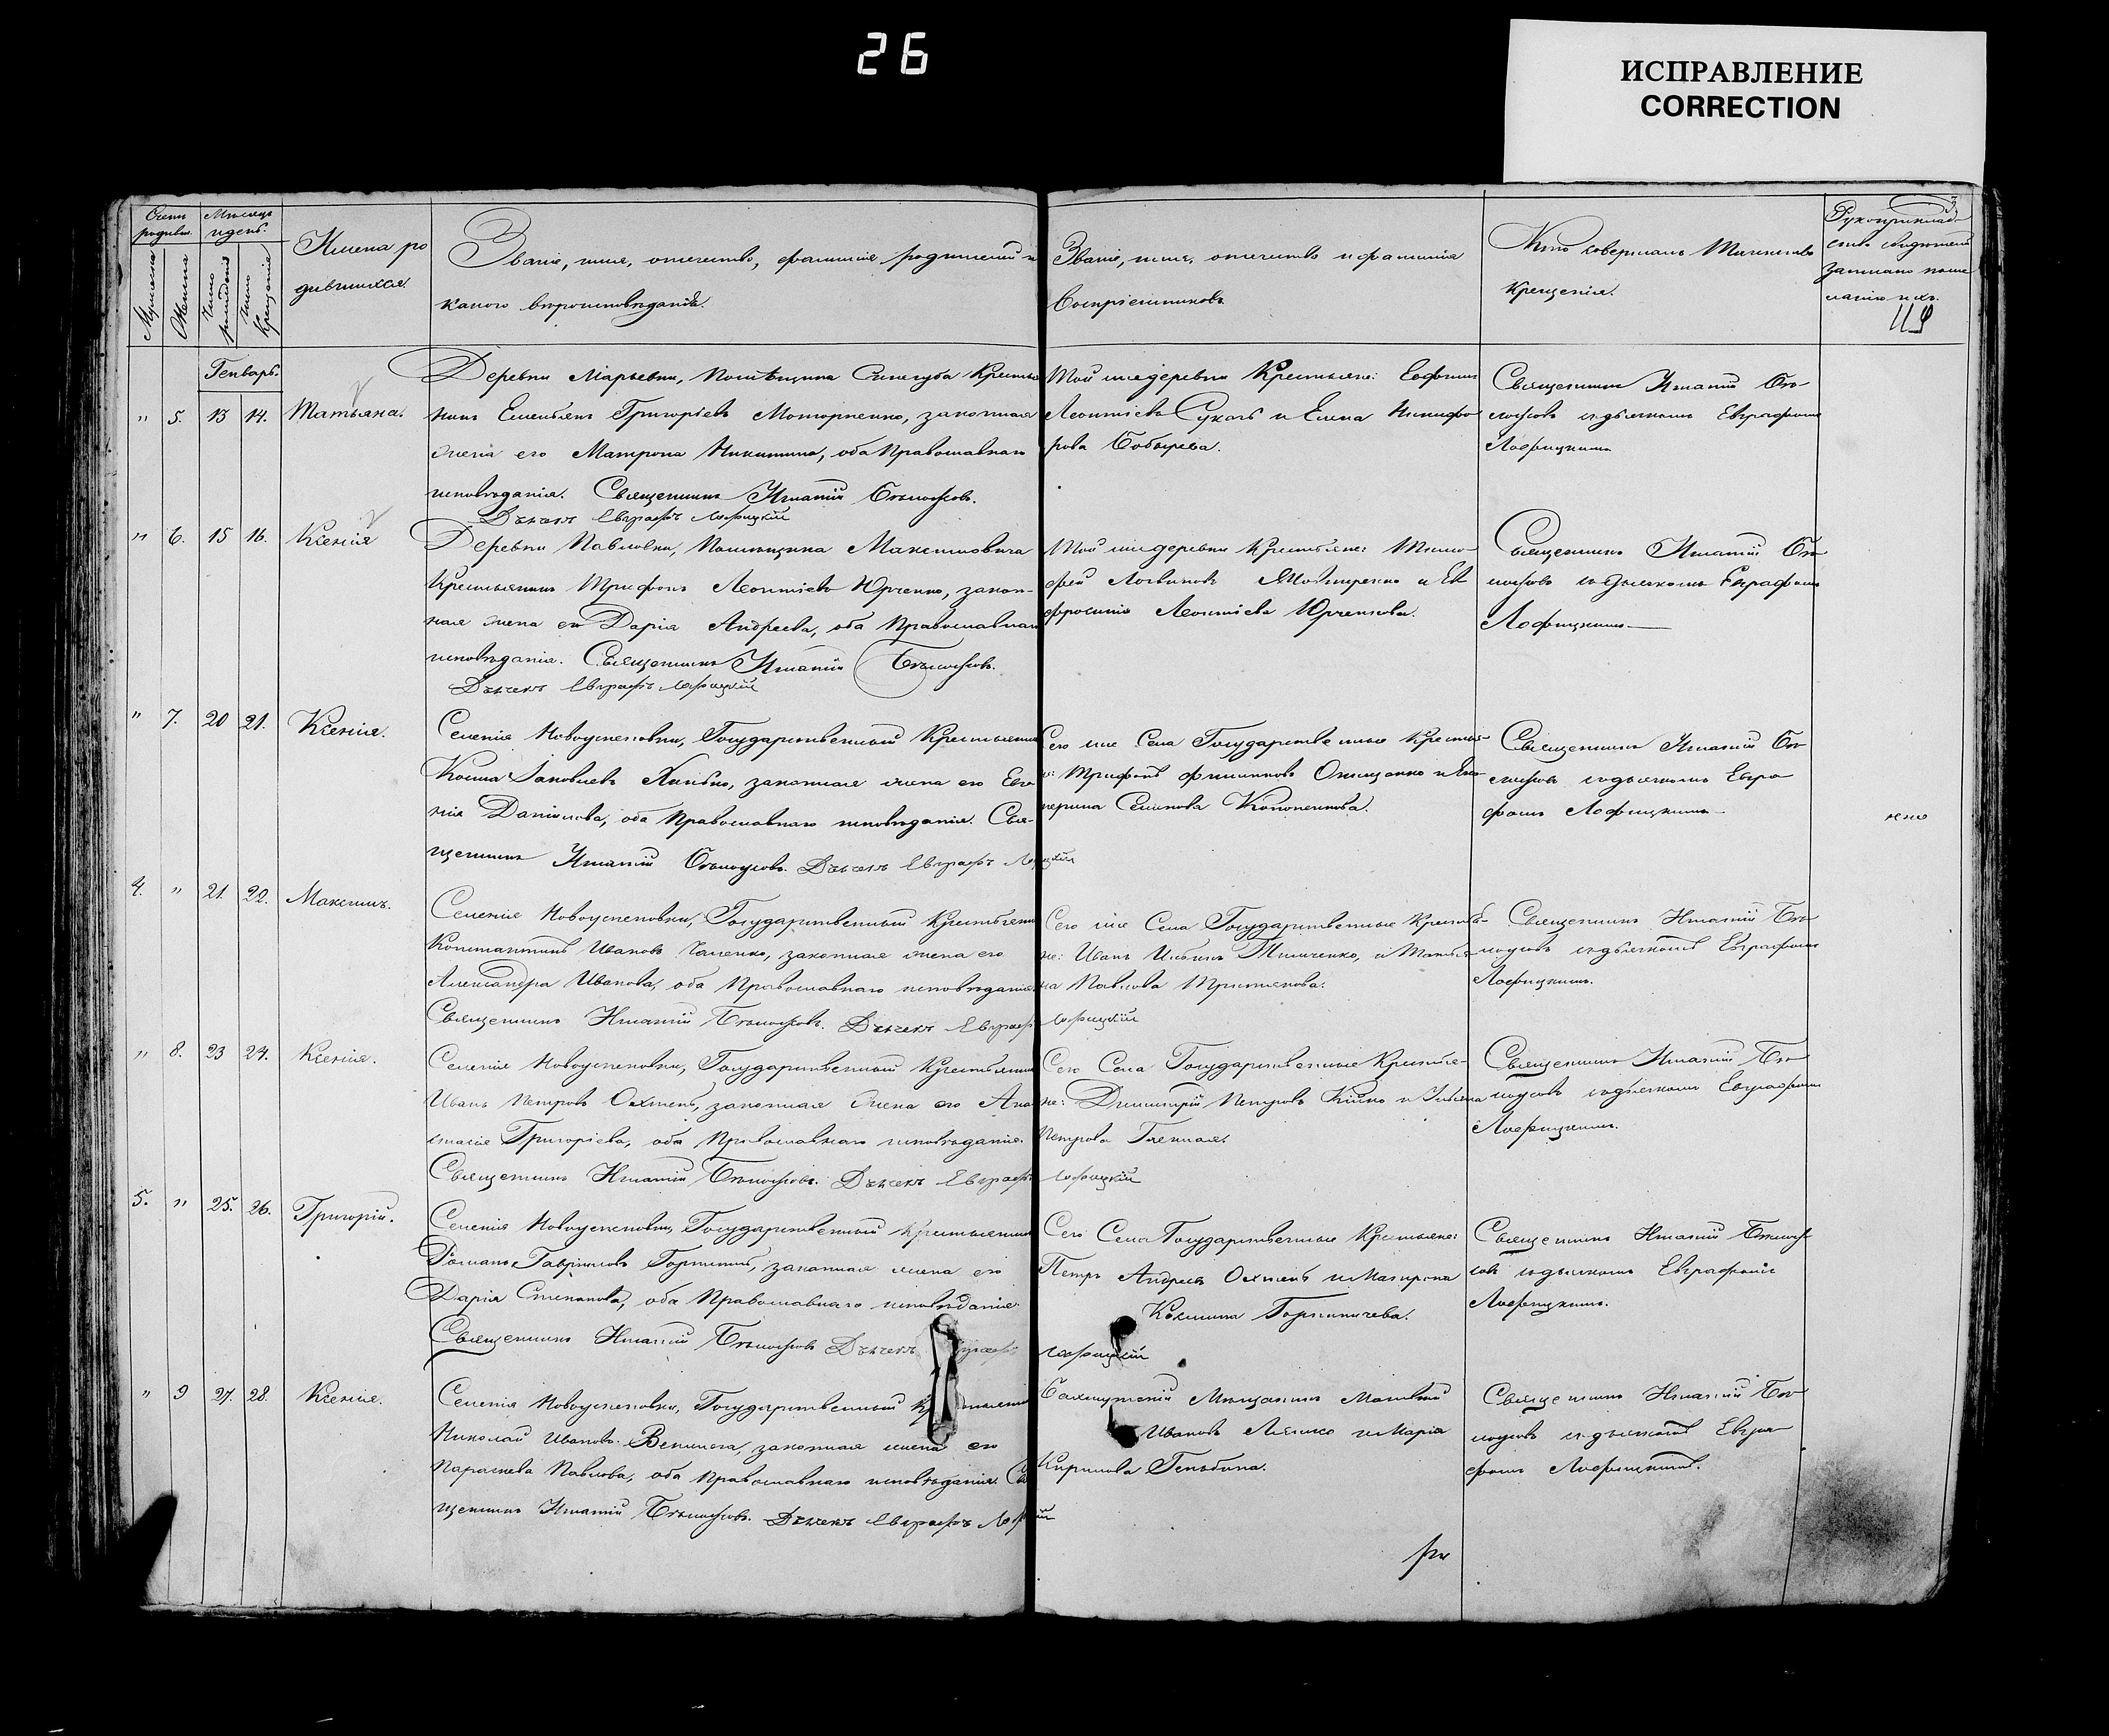 26
ИСПРАВЛЕНИЕ
CORRECTION
Мѣсяцъ
и день.
Имена ро
дившихся
Званіе, имя, отчество, фамилія родителей и
какого вѣроисповѣданія.
Званіе, имя, отчество и фамилія
Воспріемниковъ
Кто совершалъ Таинство
крещенія.
3
119
Генварь.
" 5. 13 14. Татьяна.
Деревни Марьевки, Помѣщика Синегуба Крестья
нинъ Емельянъ Григорьевъ Моторненко, законная
жена его Матрона Никитина, оба Православнаго
исповѣданія. Священникъ Игнатій Бѣлоусовъ.
Дьячекъ Евграфъ Лофицкій
Той же деревни Крестьяне:
Леонтіевъ Сукачъ и Елена Никифо
рова Бобырева.
Священникъ Игнатій Бѣ
лоусовъ съ дьячкомъ Евграфомъ
Лофицкимъ
" 6. 15 16. Ксенія
Деревни Павловки, Помѣщика Максимовича
Крестьянинъ Трифонъ Леонтіевъ Юрченко, закон-
ная жена его Дарія Андреева, оба Православнаго
исповѣданія. Священникъ Игнатій Бѣлоусовъ.
Дьячекъ Евграфъ Лофицкій
Той же деревни Крестьяне: Тимо-
фей и Ев
фросинія Леонтіева Юрченкова.
Священникъ Игнатій Бѣ
лоусовъ съ дьячкомъ Евграфомъ
Лофицкимъ
" 7. 20 21. Ксенія.
Селенія Новоуспеновки, Государственный Крестьянинъ
Козма Іаковлевъ законная жена его Евге
нія Даніилова, оба Православнаго исповѣданія. Свя-
щенникъ Игнатій Бѣлоусовъ. Дьячекъ Евграфъ Лофицкій
Сего же Села Государственные Крестья-
не: Трифонъ Филипповъ Онищенко и Ека
терина Семенова Кононенкова.
Священникъ Игнатій Бѣ
лоусовъ съ дьячкомъ Евгра
фомъ Лофицкимъ
4. " 21. 22. Максимъ.
Селенія Новоуспеновки, Государственный Крестьянинъ
Константинъ Ивановъ законная жена его
Александра Иванова, оба Православнаго исповѣданія.
Священникъ Игнатій Бѣлоусовъ. Дьячекъ Евграфъ Лофицкій
Сего же Села Государственные Крестья-
не: Иванъ Ильинъ и Татья
на Павлова
Священникъ Игнатій Бѣ
лоусовъ съ дьячкомъ Евграфомъ
Лофицкимъ.
" 8. 23 24. Ксенія.
Селенія Новоуспеновки, Государственный Крестьянинъ
Иванъ Петровъ Охтень, законная жена его Ана
стасія Григоріева, оба Православнаго исповѣданія.
Священникъ Игнатій Бѣлоусовъ. Дьячекъ Евграфъ Лофицкій
Сего Села Государственные Крестья-
не: Димитрій Петровъ и
Петрова
Священникъ Игнатій Бѣ
лоусовъ съ дьячкомъ Евграфомъ
Лофицкимъ.
5. " 25. 26. Григорій.
Селенія Новоуспеновки, Государственный Крестьянинъ
Романъ Гавріиловъ законная жена его
Дарія Степанова, оба Православнаго исповѣданія.
Священникъ Игнатій Бѣлоусовъ Дьячекъ Евграфъ Лофицкій
Сего Села Государственные Крестьяне:
Петръ Андреевъ Охтень и Матрона
Козмина
Священникъ Игнатій Бѣлоу
совъ съ дьячкомъ Евграфомъ
Лофицкимъ.
" 9 27. 28. Ксенія.
Селенія Новоуспеновки, Государственный Крестьянинъ
Николай Ивановъ законная жена его
Параскева Павлова, оба Православнаго исповѣданія. Свя
щенникъ Игнатій Бѣлоусовъ. Дьячекъ Евграфъ Лофицкій
Бахмутскій Мѣщанинъ Матвей
Ивановъ и Марія
Кирилова
Священникъ Игнатій Бѣ
лоусовъ съ дьячкомъ Евгра
фомъ Лофицкимъ.